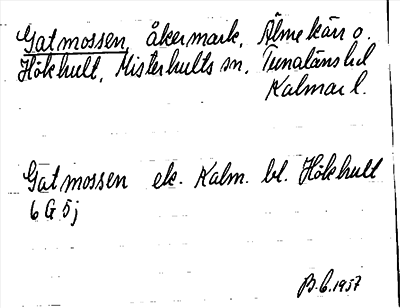 Gatmossen, åkermark, Älmekärr o.
Hökhult, Misterhults sn, Tunaläns hd
Kalmar l.
Gatmossen ek. Kalm. bl. Hökhult
6 G 5j
B.G. 1957